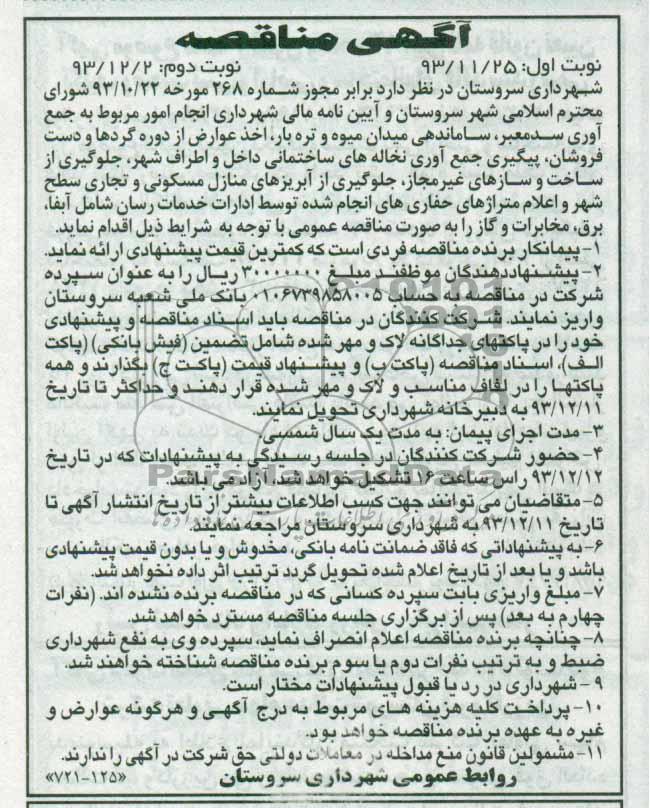 آگهی مناقصه
نوبت اول: ۹۳/۱۱/۲۵ نوبت دوم: ۹۳/۱۲/۲
شهرداری سروستان در نظر دارد برابر مجوز شماره ۲۶۸ مورخه ۹۳/۱۰/۲۳ شورای
محترم اسلامی شهر سروستان و آیین نامه مالی شهرداری انجام امور مربوط به جمع
آوری سدمعبر، ساماندهی میدان میوه و تره بار، اخذ عوارض از دوره گردها و دست
فروشان، پیگیری جمع آوری نخاله های ساختمانی داخل و اطراف شهر، جلوگیری از
ساخت و سازهای غیرمجاز، جلوگیری از آبریزهای منازل مسکونی و تجاری سطح
شهر و اعلام متراژهای حفاری های انجام شده توسط ادارات خدمات رسان شامل آبفا،
برق، مخابرات و گاز را به صورت مناقصه عمومی با توجه به شرایط ذیل اقدام نماید.
۱- پیمانکار برنده مناقصه فردی است که کمترین قیمت پیشنهادی ارائه نماید.
۲- پیشنهاددهندگان موظفند مبلغ ۳۰۰۰۰۰۰۰ ریال را به عنوان سپرده
شرکت در مناقصه به حساب ۰۱۰۶۷۳۹۸۵۸۰۰۵ بانک ملی شعبه سروستان
واریز نمایند. شرکت کنندگان در مناقصه باید اسناد مناقصه و پیشنهادی
خود را در پاکتهای جداگانه لاک و مهر شده شامل تضمین (فیش بانکی) (پاکت
الف)، اسناد مناقصه (پاکت ب) و پیشنهاد قیمت (پاکت ج) بگذارند و همه
پاکتها را در لفاف مناسب و لاک و مهر شده قرار دهند و حداکثر تا تاریخ
۹۳/۱۲/۱۱ به دبیرخانه شهرداری تحویل نمایند.
۳- مدت اجرای پیمان: به مدت یک سال شمسی.
۴- حضور شرکت کنندگان در جلسه رسیدگی به پیشنهادات که در تاریخ
۹۳/۱۲/۱۲ راس ساعت ۱۶ تشکیل خواهد شد، آزاد می باشد.
۵- متقاضیان می توانند جهت کسب اطلاعات بیشتر از تاریخ انتشار آگهی تا
تاریخ ۹۳/۱۲/۱۱ به شهرداری سروستان مراجعه نمایند.
۶- به پیشنهاداتی که فاقد ضمانت نامه بانکی، مخدوش و یا بدون قیمت پیشنهادی
باشد و یا بعد از تاریخ اعلام شده تحویل گردد ترتیب اثر داده نخواهد شد.
۷- مبلغ واریزی بابت سپرده کسانی که در مناقصه برنده نشده اند. (نفرات
چهارم به بعد) پس از برگزاری جلسه مناقصه مسترد خواهد شد.
۸- چنانچه برنده مناقصه اعلام انصراف نماید، سپرده وی به نفع شهرداری
ضبط و به ترتیب نفرات دوم یا سوم برنده مناقصه شناخته خواهند شد.
۹- شهرداری در رد یا قبول پیشنهادات مختار است.
۱۰- پرداخت کلیه هزینه های مربوط به درج آگهی و هرگونه عوارض و
غیره به عهده برنده مناقصه خواهد بود.
۱۱- مشمولین قانون منع مداخله در معاملات دولتی حق شرکت در آگهی را ندارند.
روابط عمومی شهرداری سروستان «۷۲۱-۱۲۵»
ParsNamadData